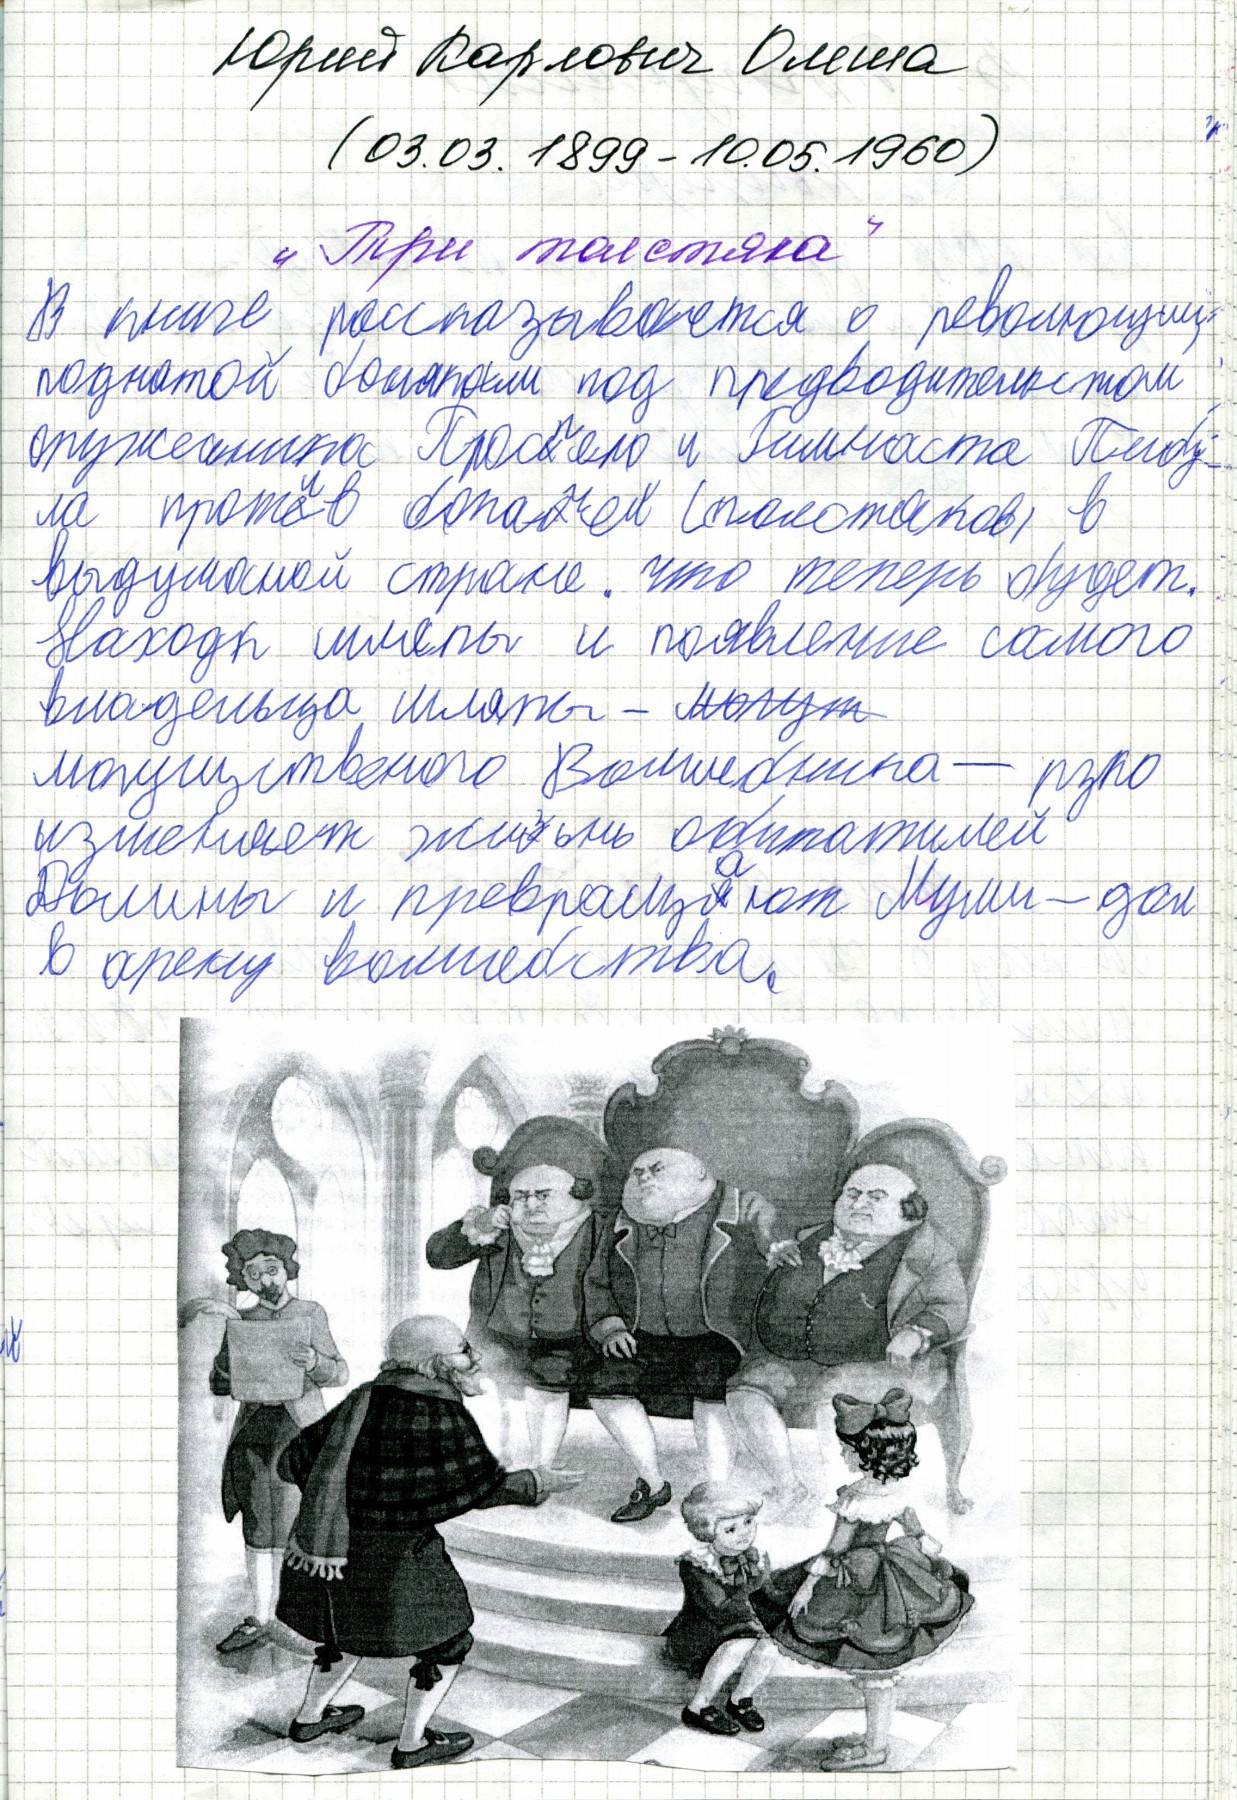 Юрий Карлович Олеша
(03.03.1899-10.05.1960)
"Три толстяка"
В книге рассказывается о революции,
поднатой бонапоми под предводительстом
оружеиника Просперо и Гимнаста Тибу-
ла против богачей (толстяков) в
выдуманой стране. что теперь будет.
Находк шляпы и появление самого
владельца шляпы - могут
могущственого Волшебника — рзко
изменяет жизнь обитатилей
Долины и превращают Муми-дол
в арену волшебства.